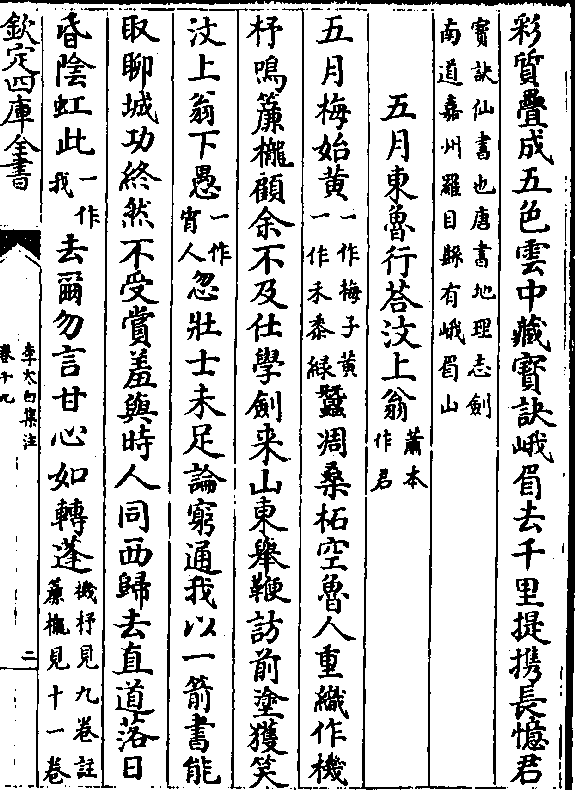 彩質疊成五色雲中藏寳訣峨眉去千里提攜長憶君
寳訣仙書也唐書地理志劍
南道嘉州羅目縣有峨眉山
五月東魯行荅汶上翁蕭本作君
五月梅始黄一作梅子黄一作禾黍緑蠶凋桑柘空魯人重織作機
杼鳴簾櫳顧余不及仕學劍來山東舉鞭訪前塗獲笑
汶上翁下愚一作宵人忽壯士未足論窮通我以一箭書能
取聊城功終然不受賞羞與時人同西歸去直道落日
昏陰虹此一作我去爾勿言甘心如轉蓬機杼見九卷註簾櫳見十一卷
欽定四庫全書
李太白集注
卷十九
二